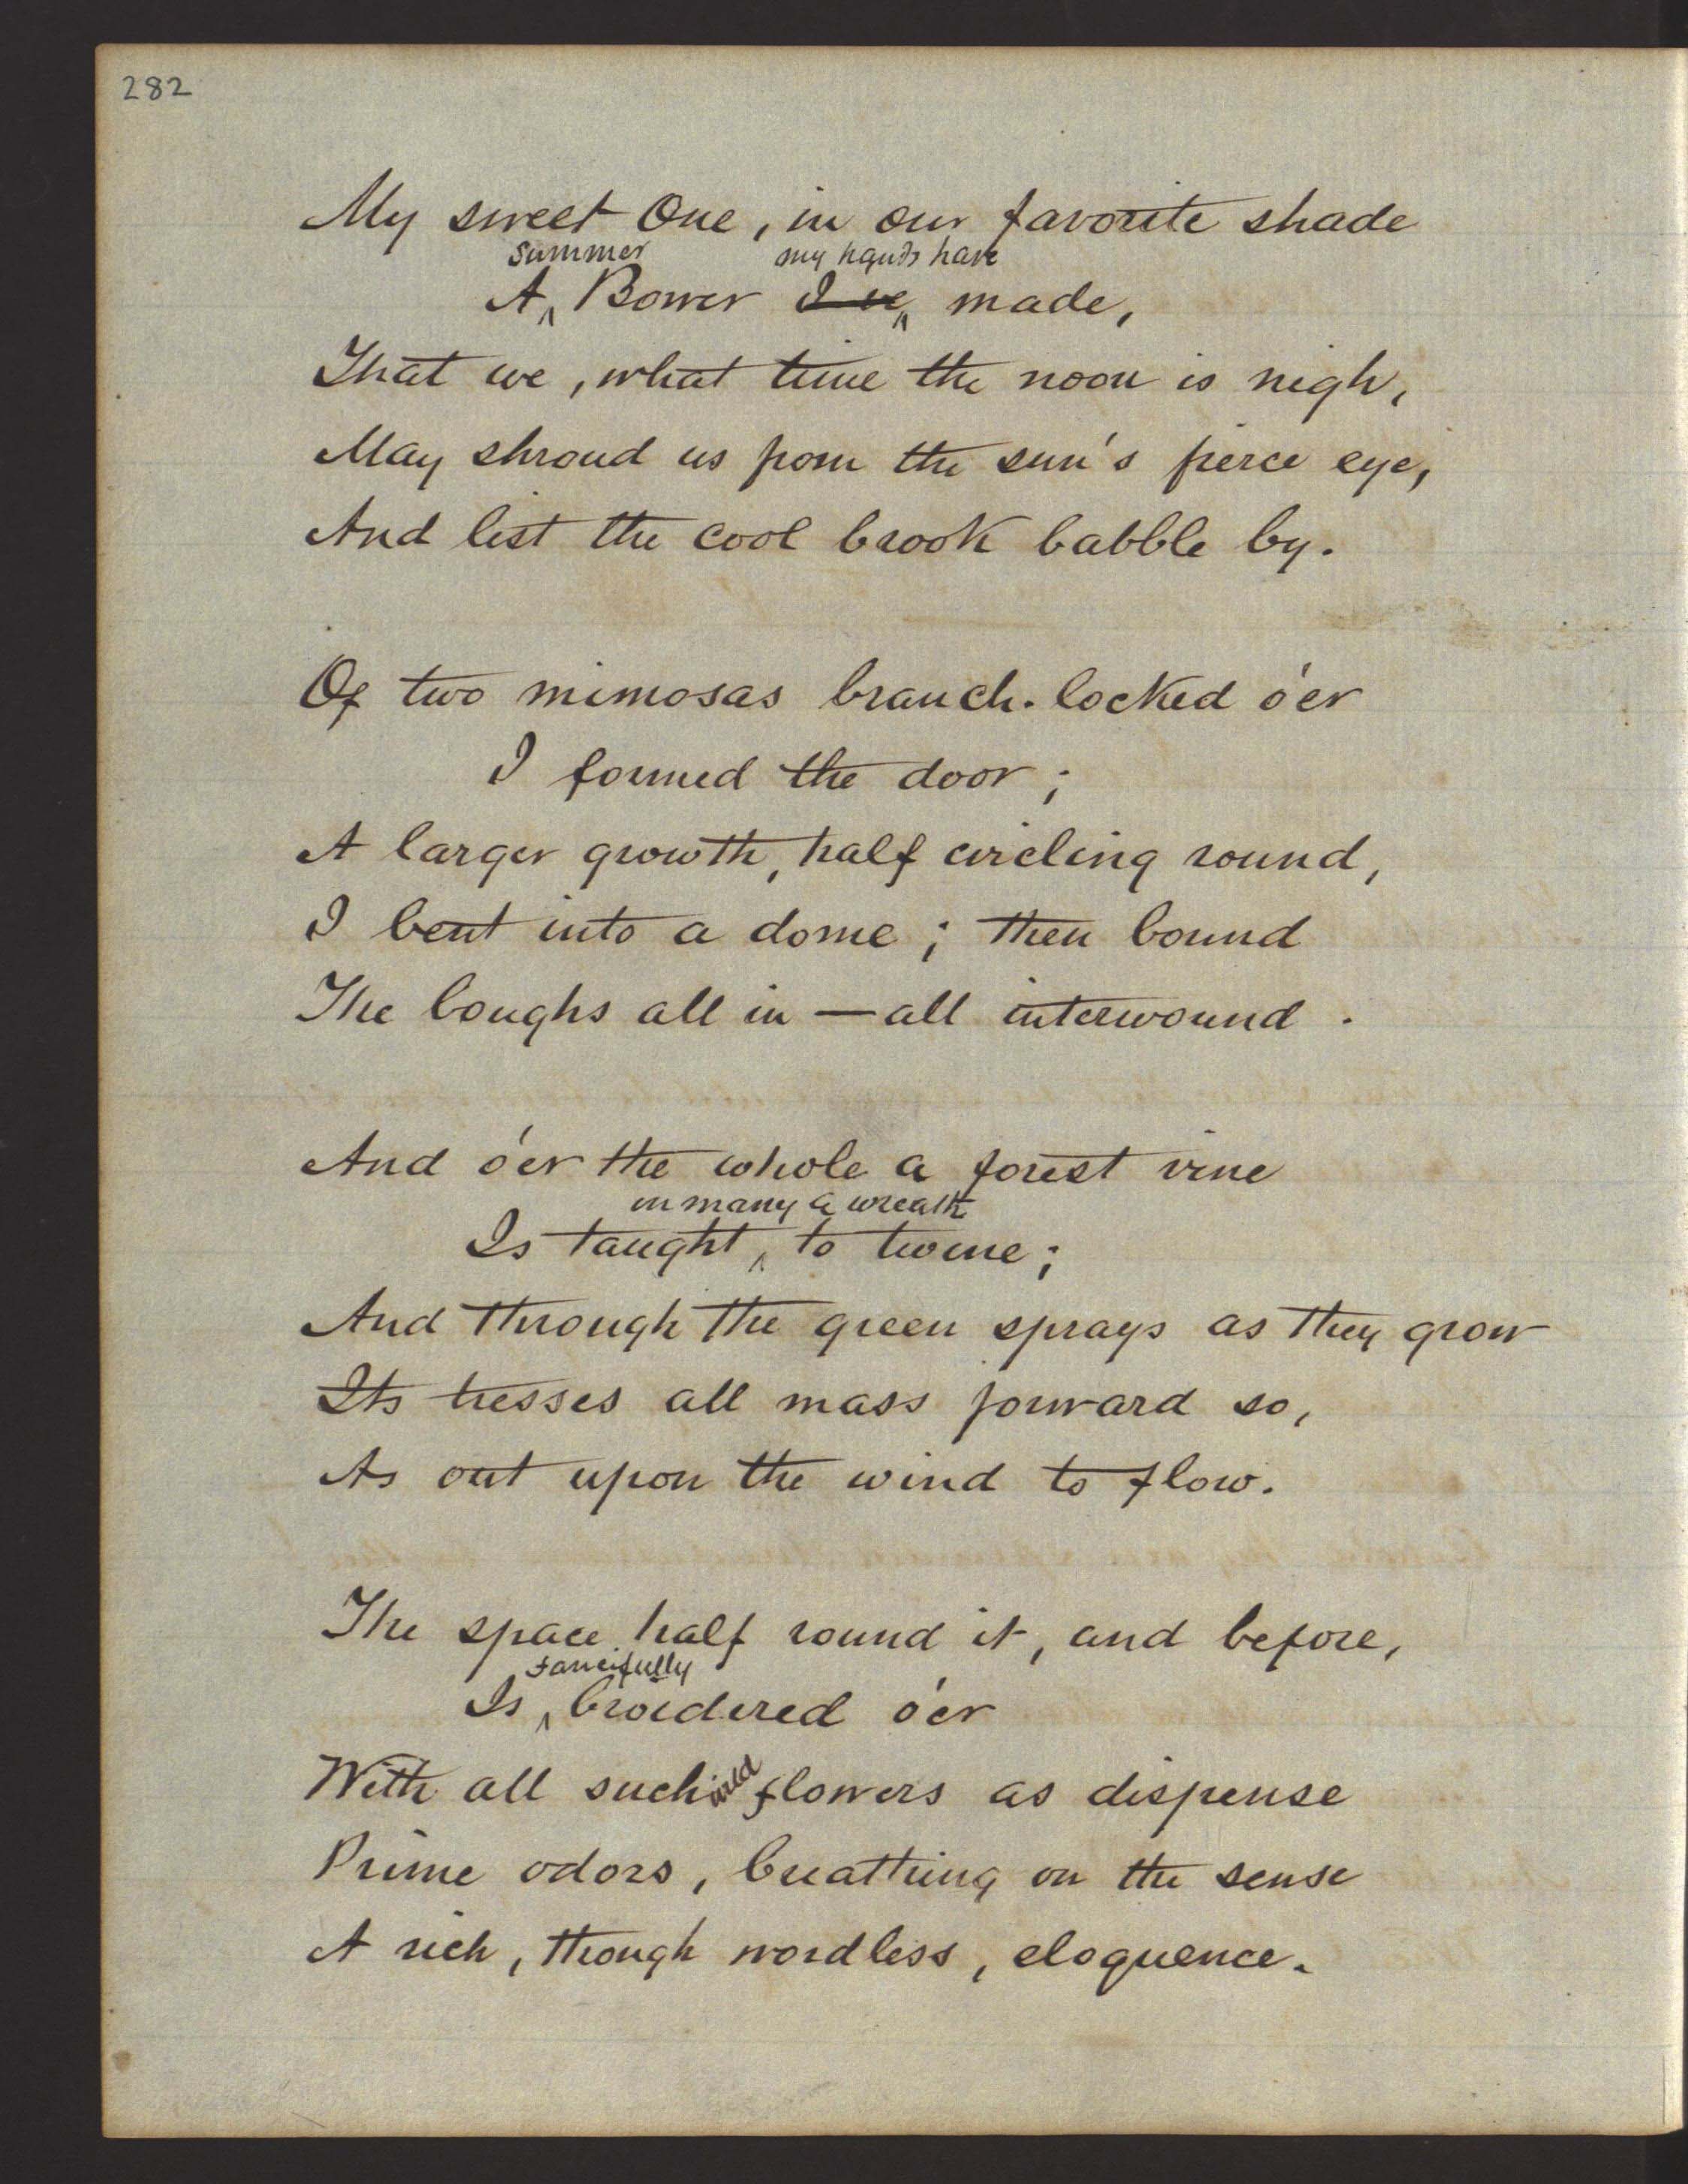 282
My sweet One, in our favorite shade
summer my hands have
A ^ Bower I've ^ made,
That we, what time the noon is nigh,
May shroud us from the sun's fierce eye,
And list the cool brook babble by.
Of two mimosas branch-locked o'er
I formed the door;
A larger growth, half circling round,
I bent into a dome; then bound
The boughs all in — all interwound.
And o'er the whole a forest vine
in many a wreath
Is taught ^ to twine;
And through the green sprays as they grow
Its tresses all mass forward so,
As out upon the wind to flow.
The space half round it, and before,
fancifully
Is ^ broidered o'er
With all such wild flowers as dispense
Prime odors, breathing on the sense
A rich, though wordless, eloquence.